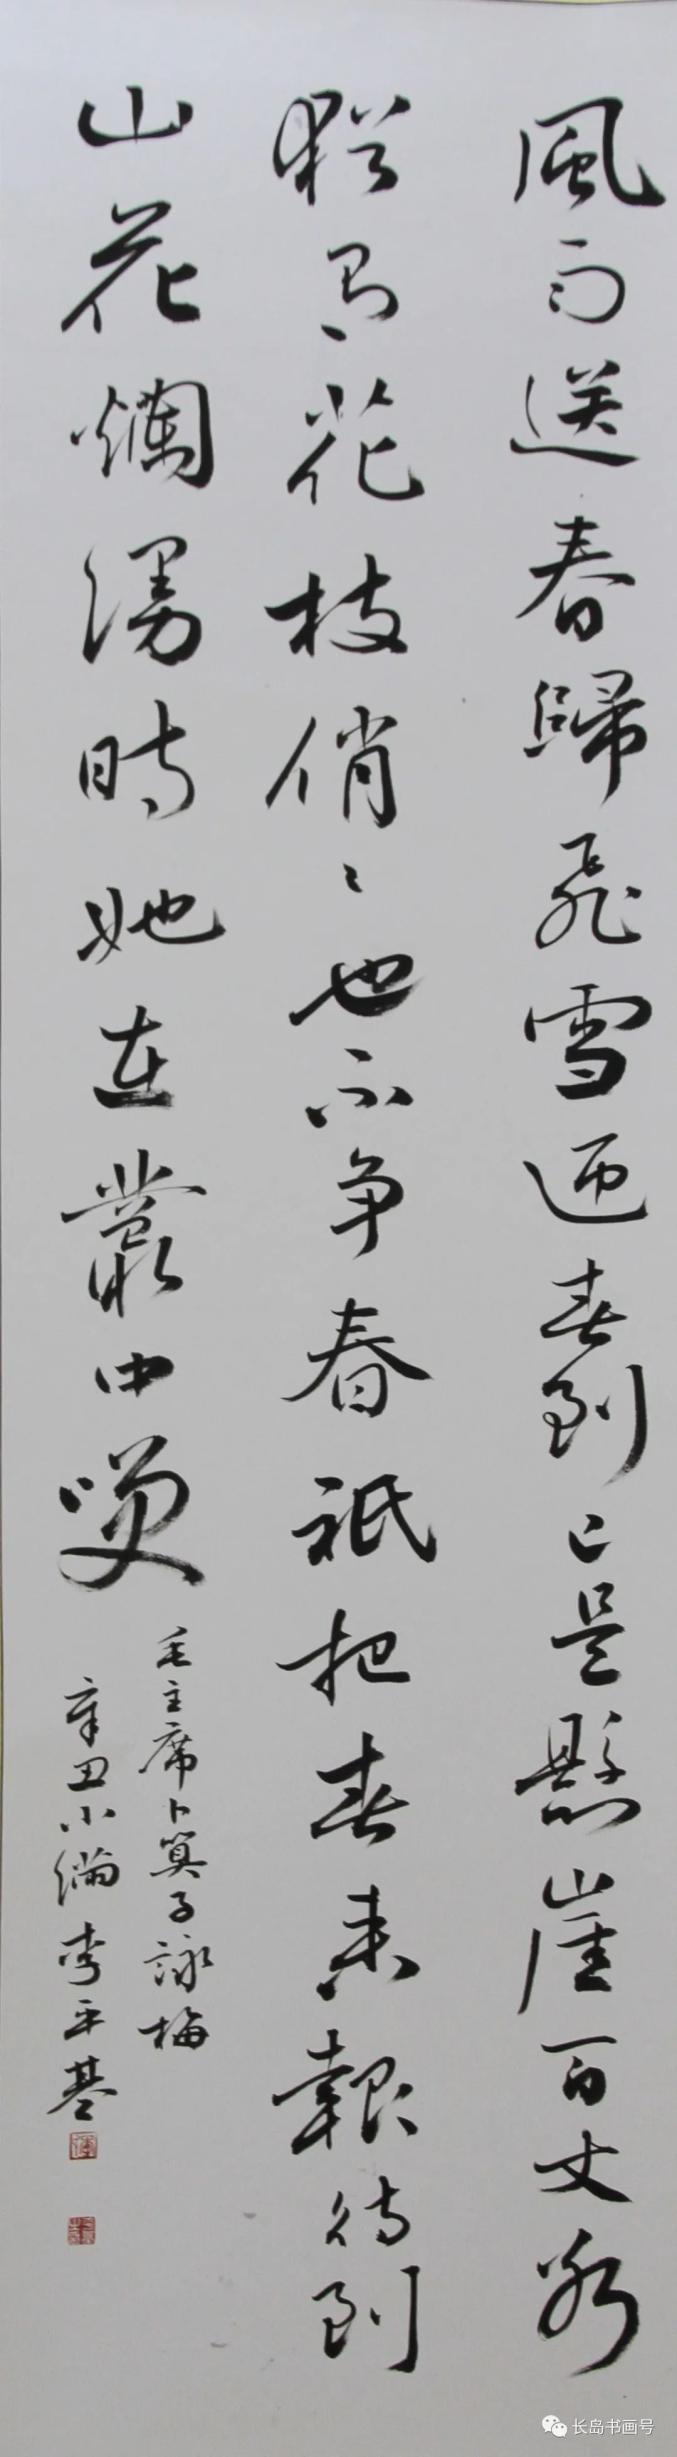 風雨送春歸飛雪迎春到已是懸崖百丈冰
猶有花枝俏〻也不争春祇把春来報待到
山花爛漫時她在叢中咲
毛主席卜算子詠梅
辛丑小滿李平基
长岛书画号